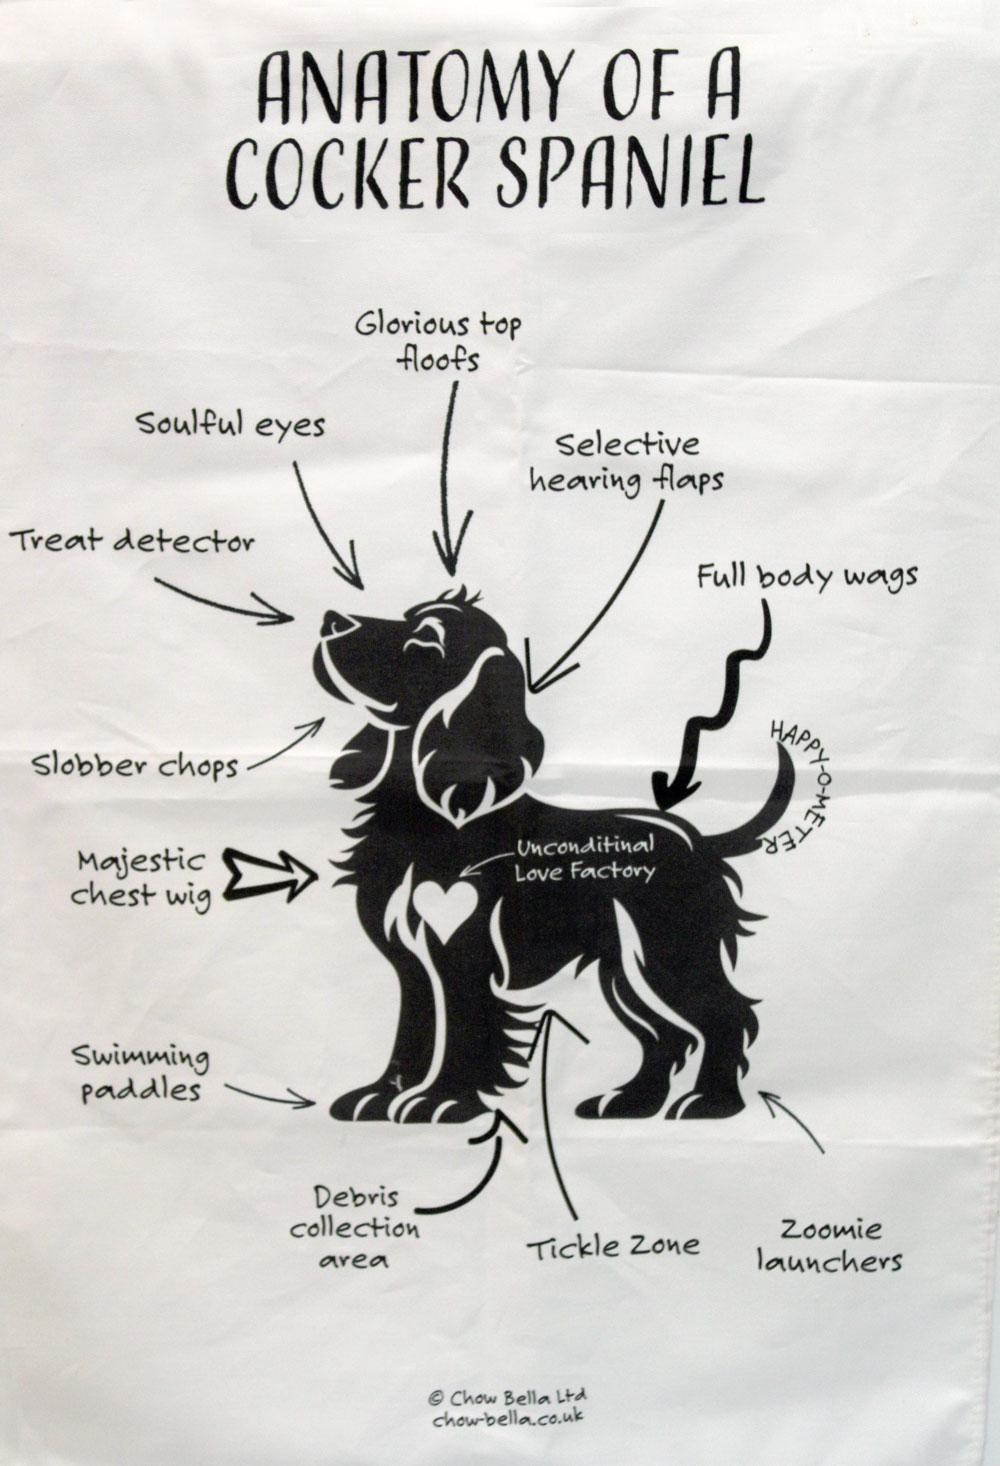 ANATOMY OF A
COCKER SPANIEL
Glorious top
floofs
Soulful eyes
Selective
hearing flaps
Treat detector
Full body wags
HAPPY-O-METER
Slobber chops
Unconditinal
Love Factory
Majestic
chest wig
Swimming
paddles
Debris
collection
area
Tickle Zone
Zoomie
launchers
© Chow Bella Ltd
chow-bella.co.uk